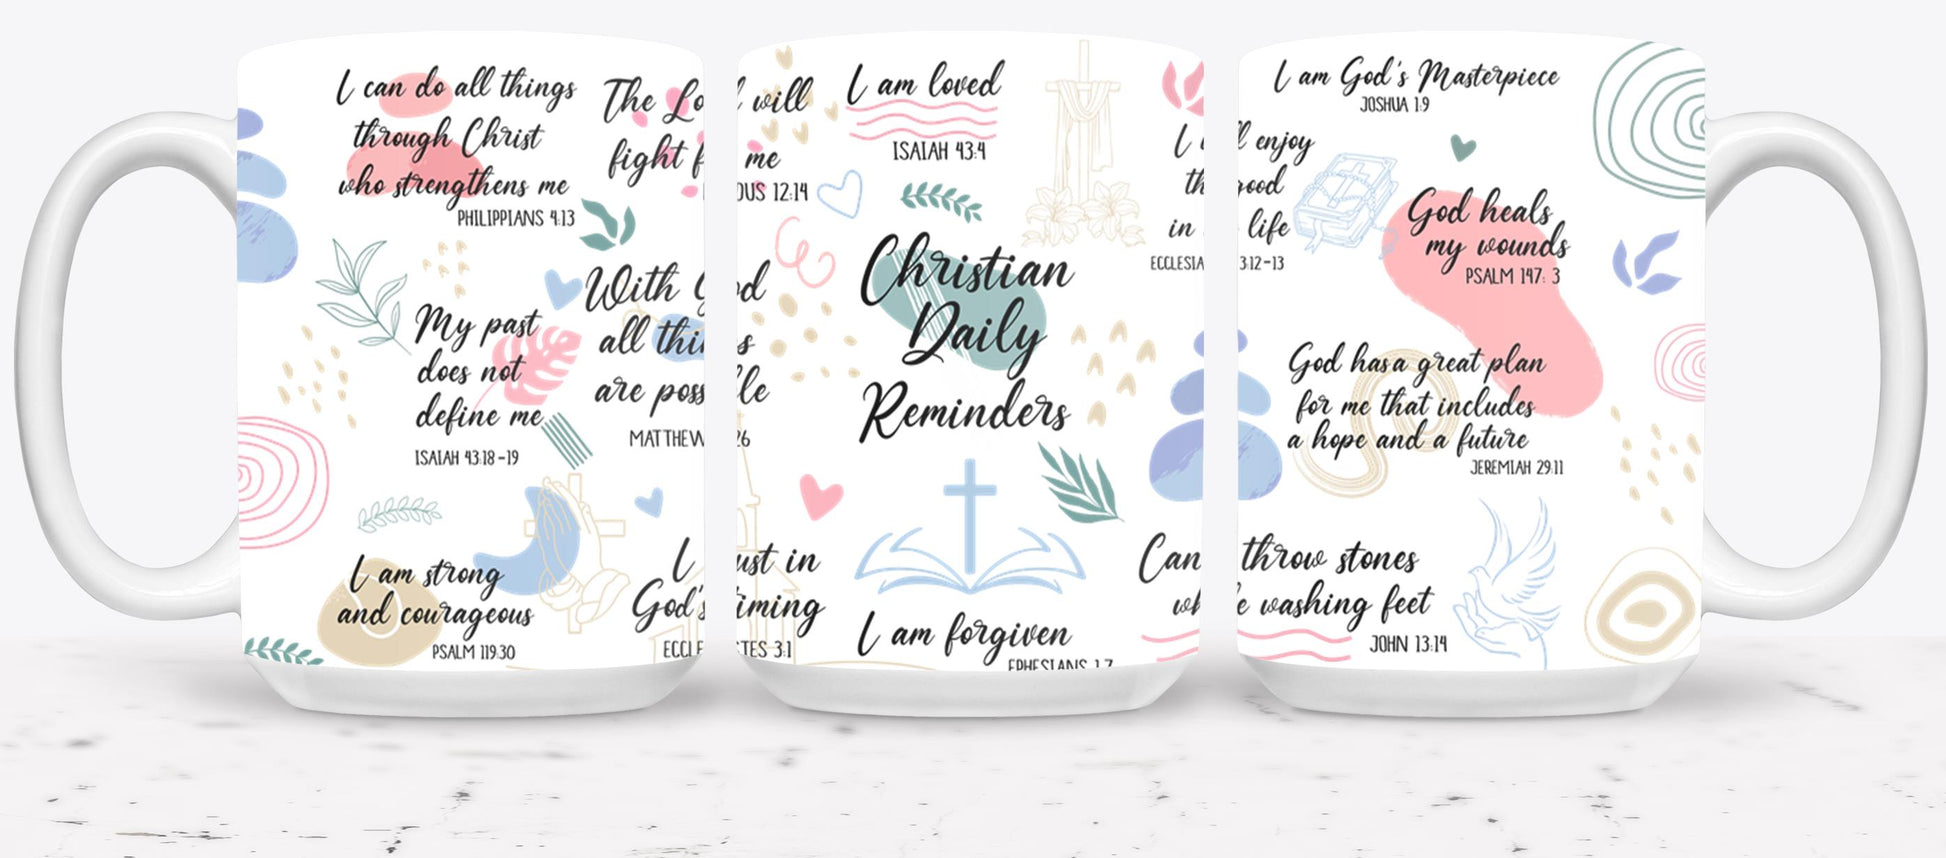 I can do all things
through Christ
who strengthens me
PHILIPPIANS 4:13
The Lo
fight f
My past
does not
define me
ISAIAH 43:18-19
With G
all thi
are poss
MATTHEW
I am strong
and courageous
PSALM 119:30
I
God's
ECCLE
will
me
OUS 12:14
od
s
le
26
ust in
timing
TES 3:1
I am loved
ISAIAH 43:4
Christian
Daily
Reminders
I am forgiven
EPHESIANS 1:7
I
th
in
ECCLESIA
Can
wh
I am God's Masterpiece
JOSHUA 1:9
enjoy
good
life
3:12-13
God heals
my wounds
PSALM 147: 3
God has a great plan
for me that includes
a hope and a future
JEREMIAH 29:11
throw stones
e washing feet
JOHN 13:14